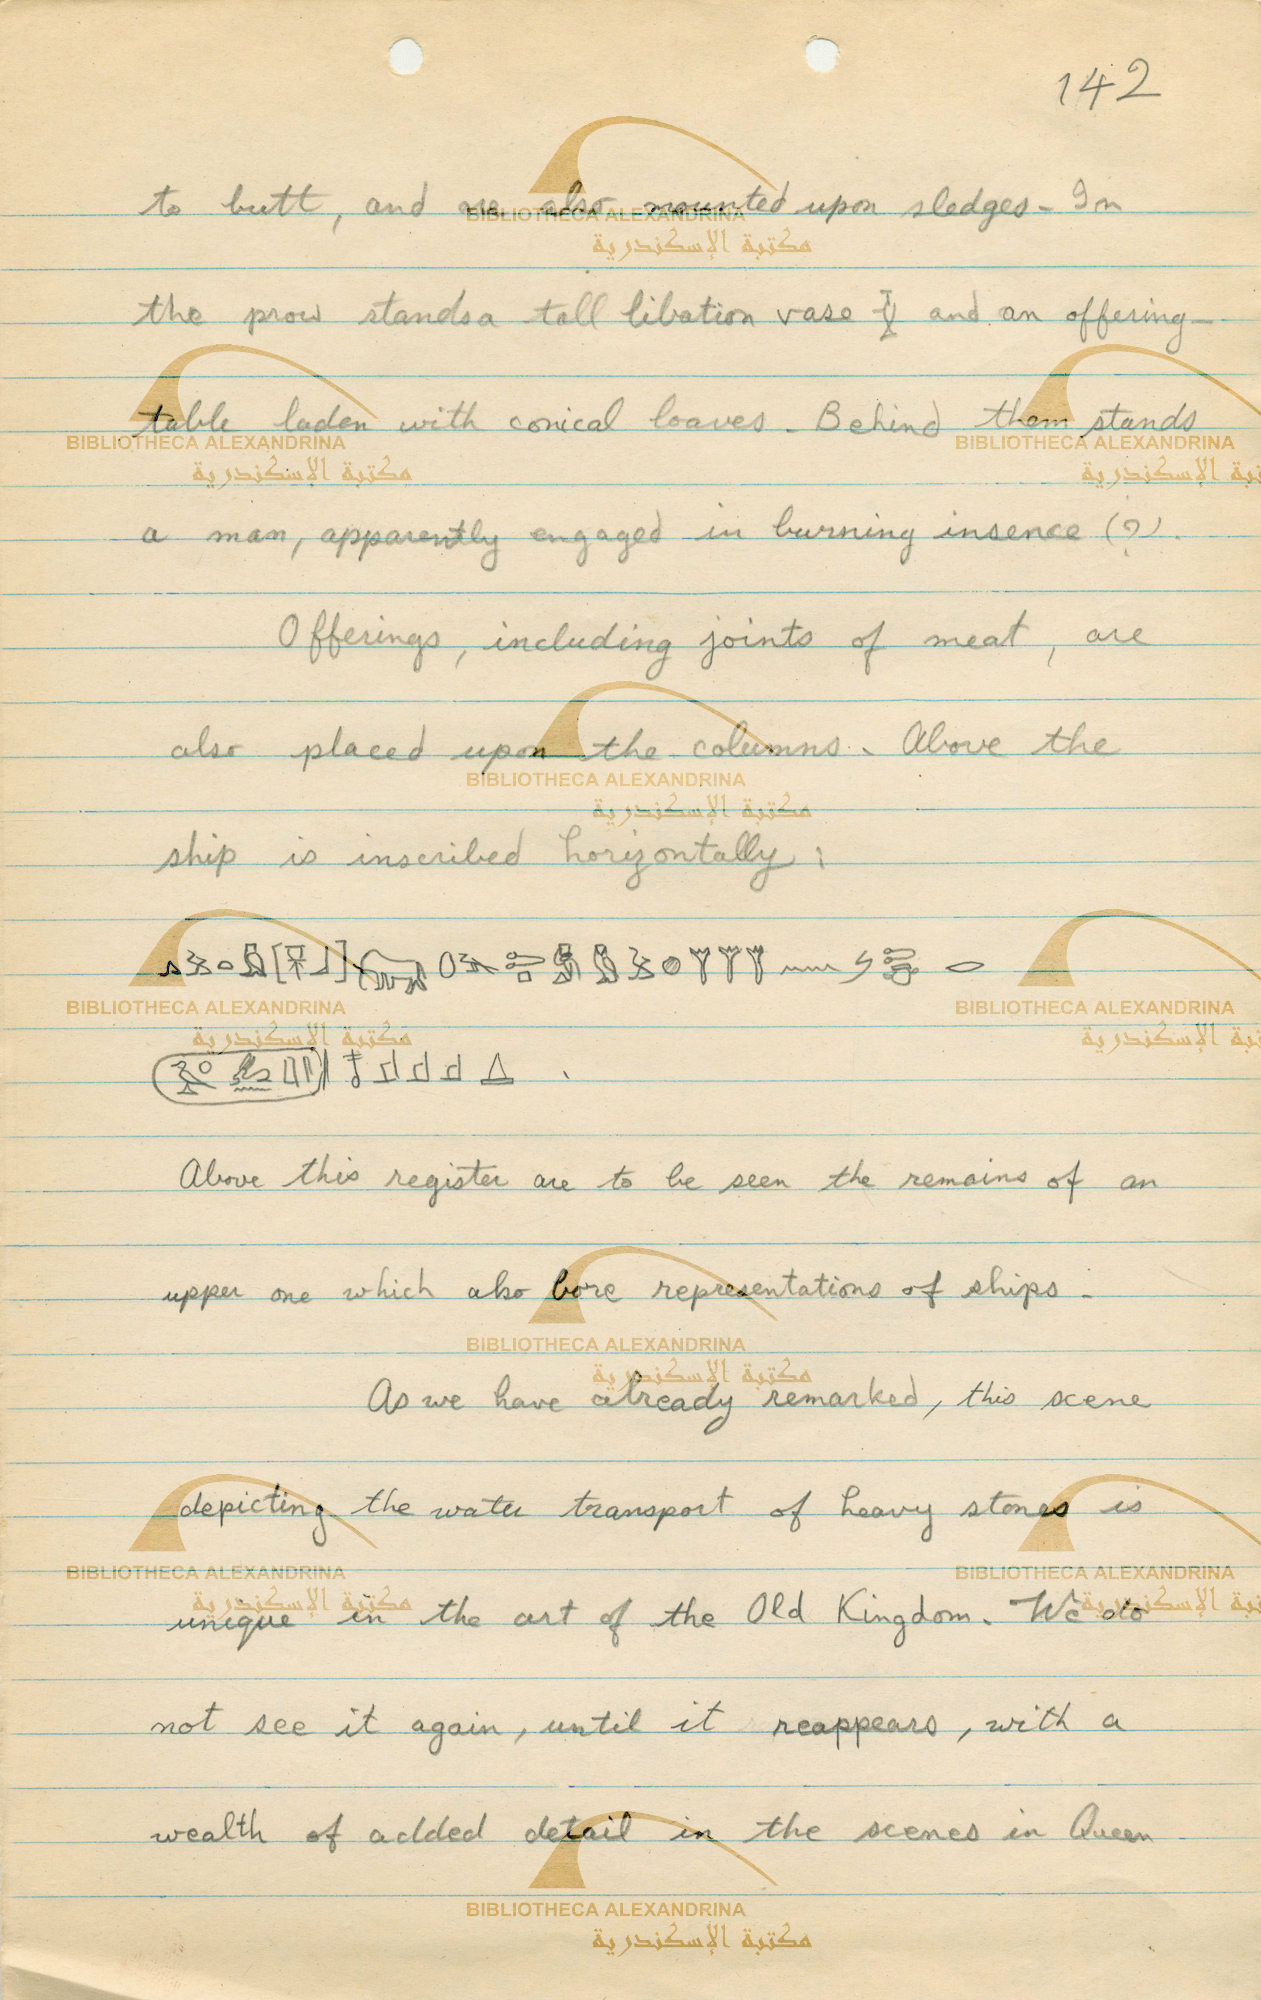 142
to butt, and are also mounted upon sledges - In
the prow stands a tall libation vase and an offering -
table laden with conical loaves - Behind them stands
a man, apparently engaged in burning insence (?).
Offerings, including joints of meat, are
also placed upon the columns. Above the
ship is inscribed horizontally :
Above this register are to be seen the remains of an
upper one which also bore representations of ships -
As we have already remarked, this scene
depicting the water transport of heavy stones is
unique in the art of the Old Kingdom. We do
not see it again, until it reappears, with a
wealth of added detail in the scenes in Queen
BIBLIOTHECA ALEXANDRINA
مكتبة الإسكندرية